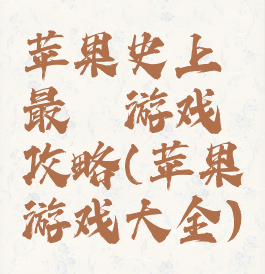 苹果史上
最 游戏
攻略(苹果
游戏大全)